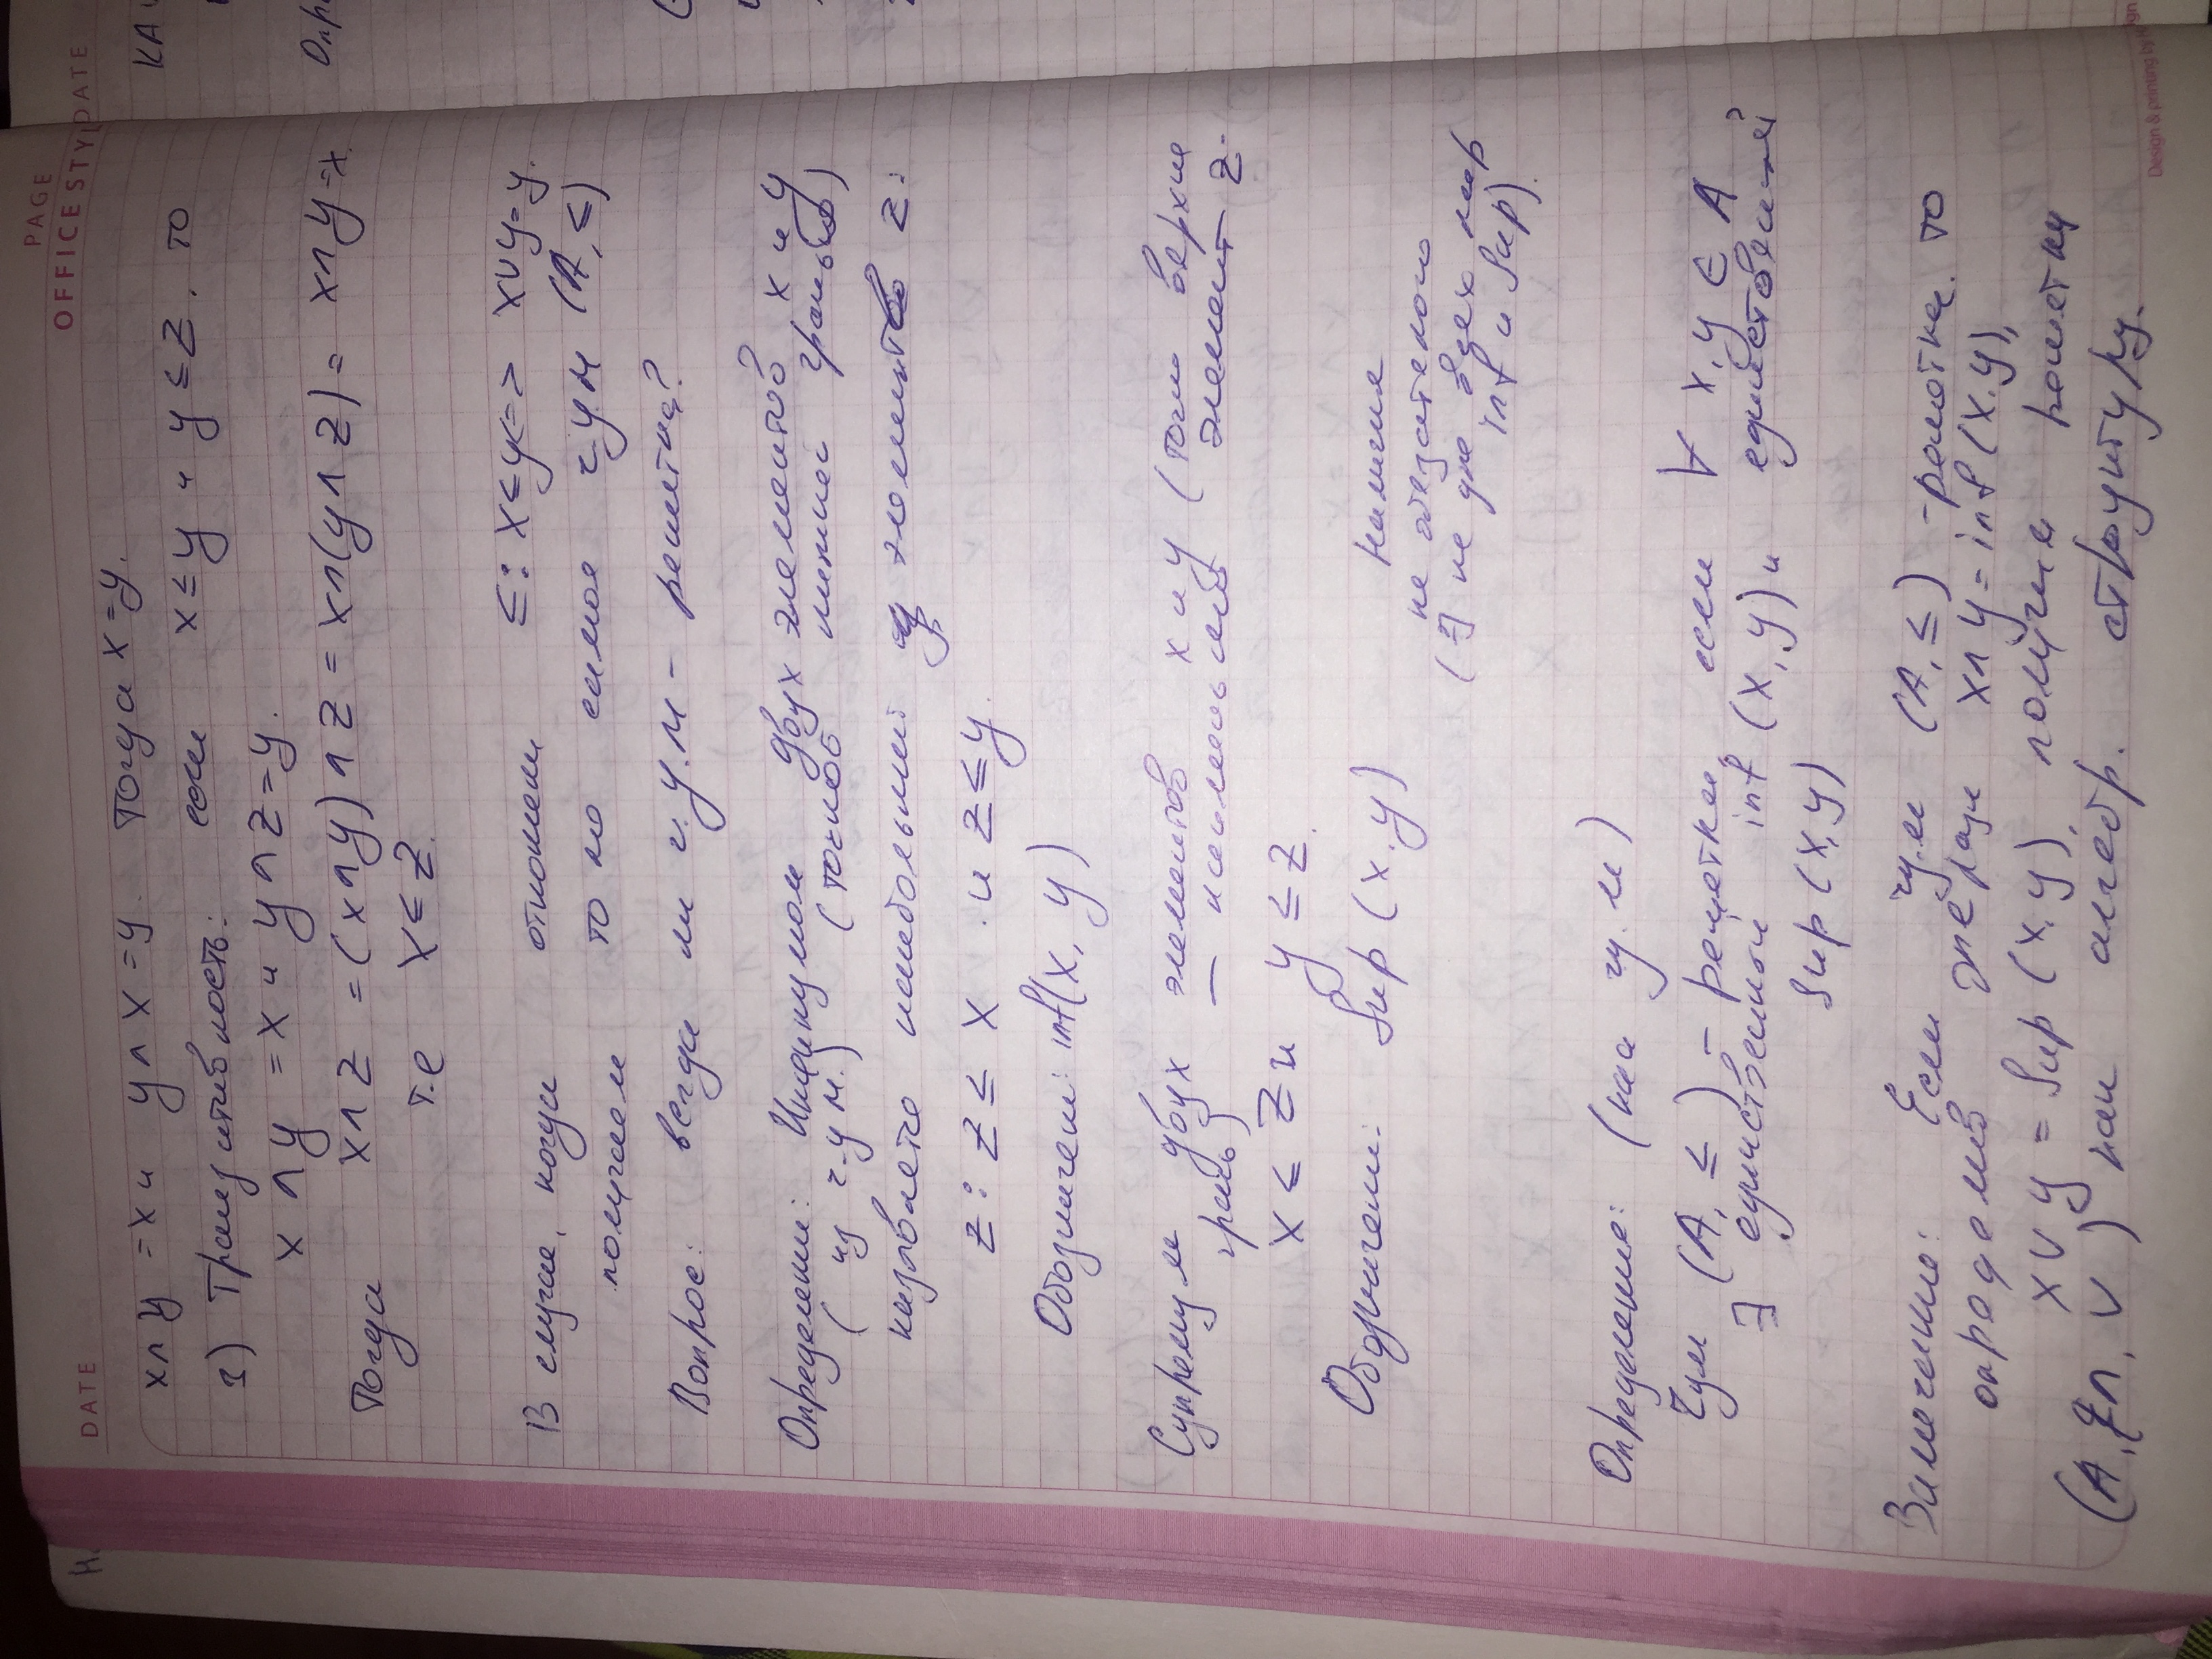 PAGE
DATE
OFFICE STYL
DATE
x∧y = x и y∧x = y. Тогда x = y.
3) Транзитивность: если x ≤ y и y ≤ z, то
x∧y = x и y∧z = y.
Тогда x∧z = (x∧y)∧z = x∧(y∧z) = x∧y = x.
т.е x ≤ z.
В случае, когда отношени ≤: x ≤ y <=> x∨y = y.
получаем то же самое ч.у.м (A, ≤)
Вопрос: всегда ли ч.у.м – решетка?
Определение: Инфинумом двух элементов x и y
(из ч.у.м.) (точной нижней гранью)
назовается наибольший из элементов z:
z: z ≤ x и z ≤ y.
Обозначен: inf(x, y)
Супремум двух элементов x и y (точн верхне
грань) — наименьший элемент z:
x ≤ z и y ≤ z.
Обозначен: Sup (x, y)
наличие
не обязательно
(∃ не для всех пар
inf и sup).
Определение: (как чу.м)
Чум (A, ≤) – решетка, если ∀ x, y ∈ A
∃ единственный inf (x, y) и единственный
sup (x, y)
Замечание: Если чу.м (A, ≤) – решетка, то
определив операции x∧y = inf (x, y),
x∨y = sup (x, y), получим решетку
(A, ∧, ∨) как алгебр. структуру.
КА
Опр
Design & printing by